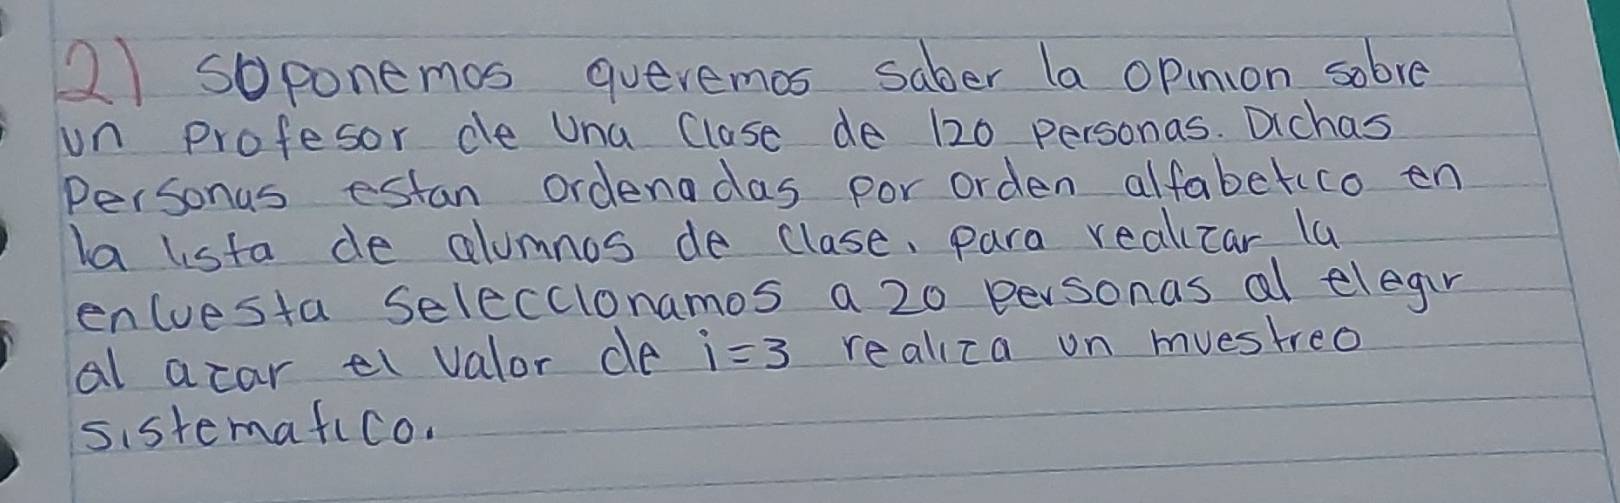 2) Soponemos queremos saber la opinion sobre
un profesor de Una Clase de 120 personas. Dichas
Personas estan ordenadas por orden alfabetico en
la lista de alumnos de clase, para realizar la
encuesta Seleccionamos a 20 personas al elegir
al azar el valor de i=3 realiza un muestreo
sistematico.